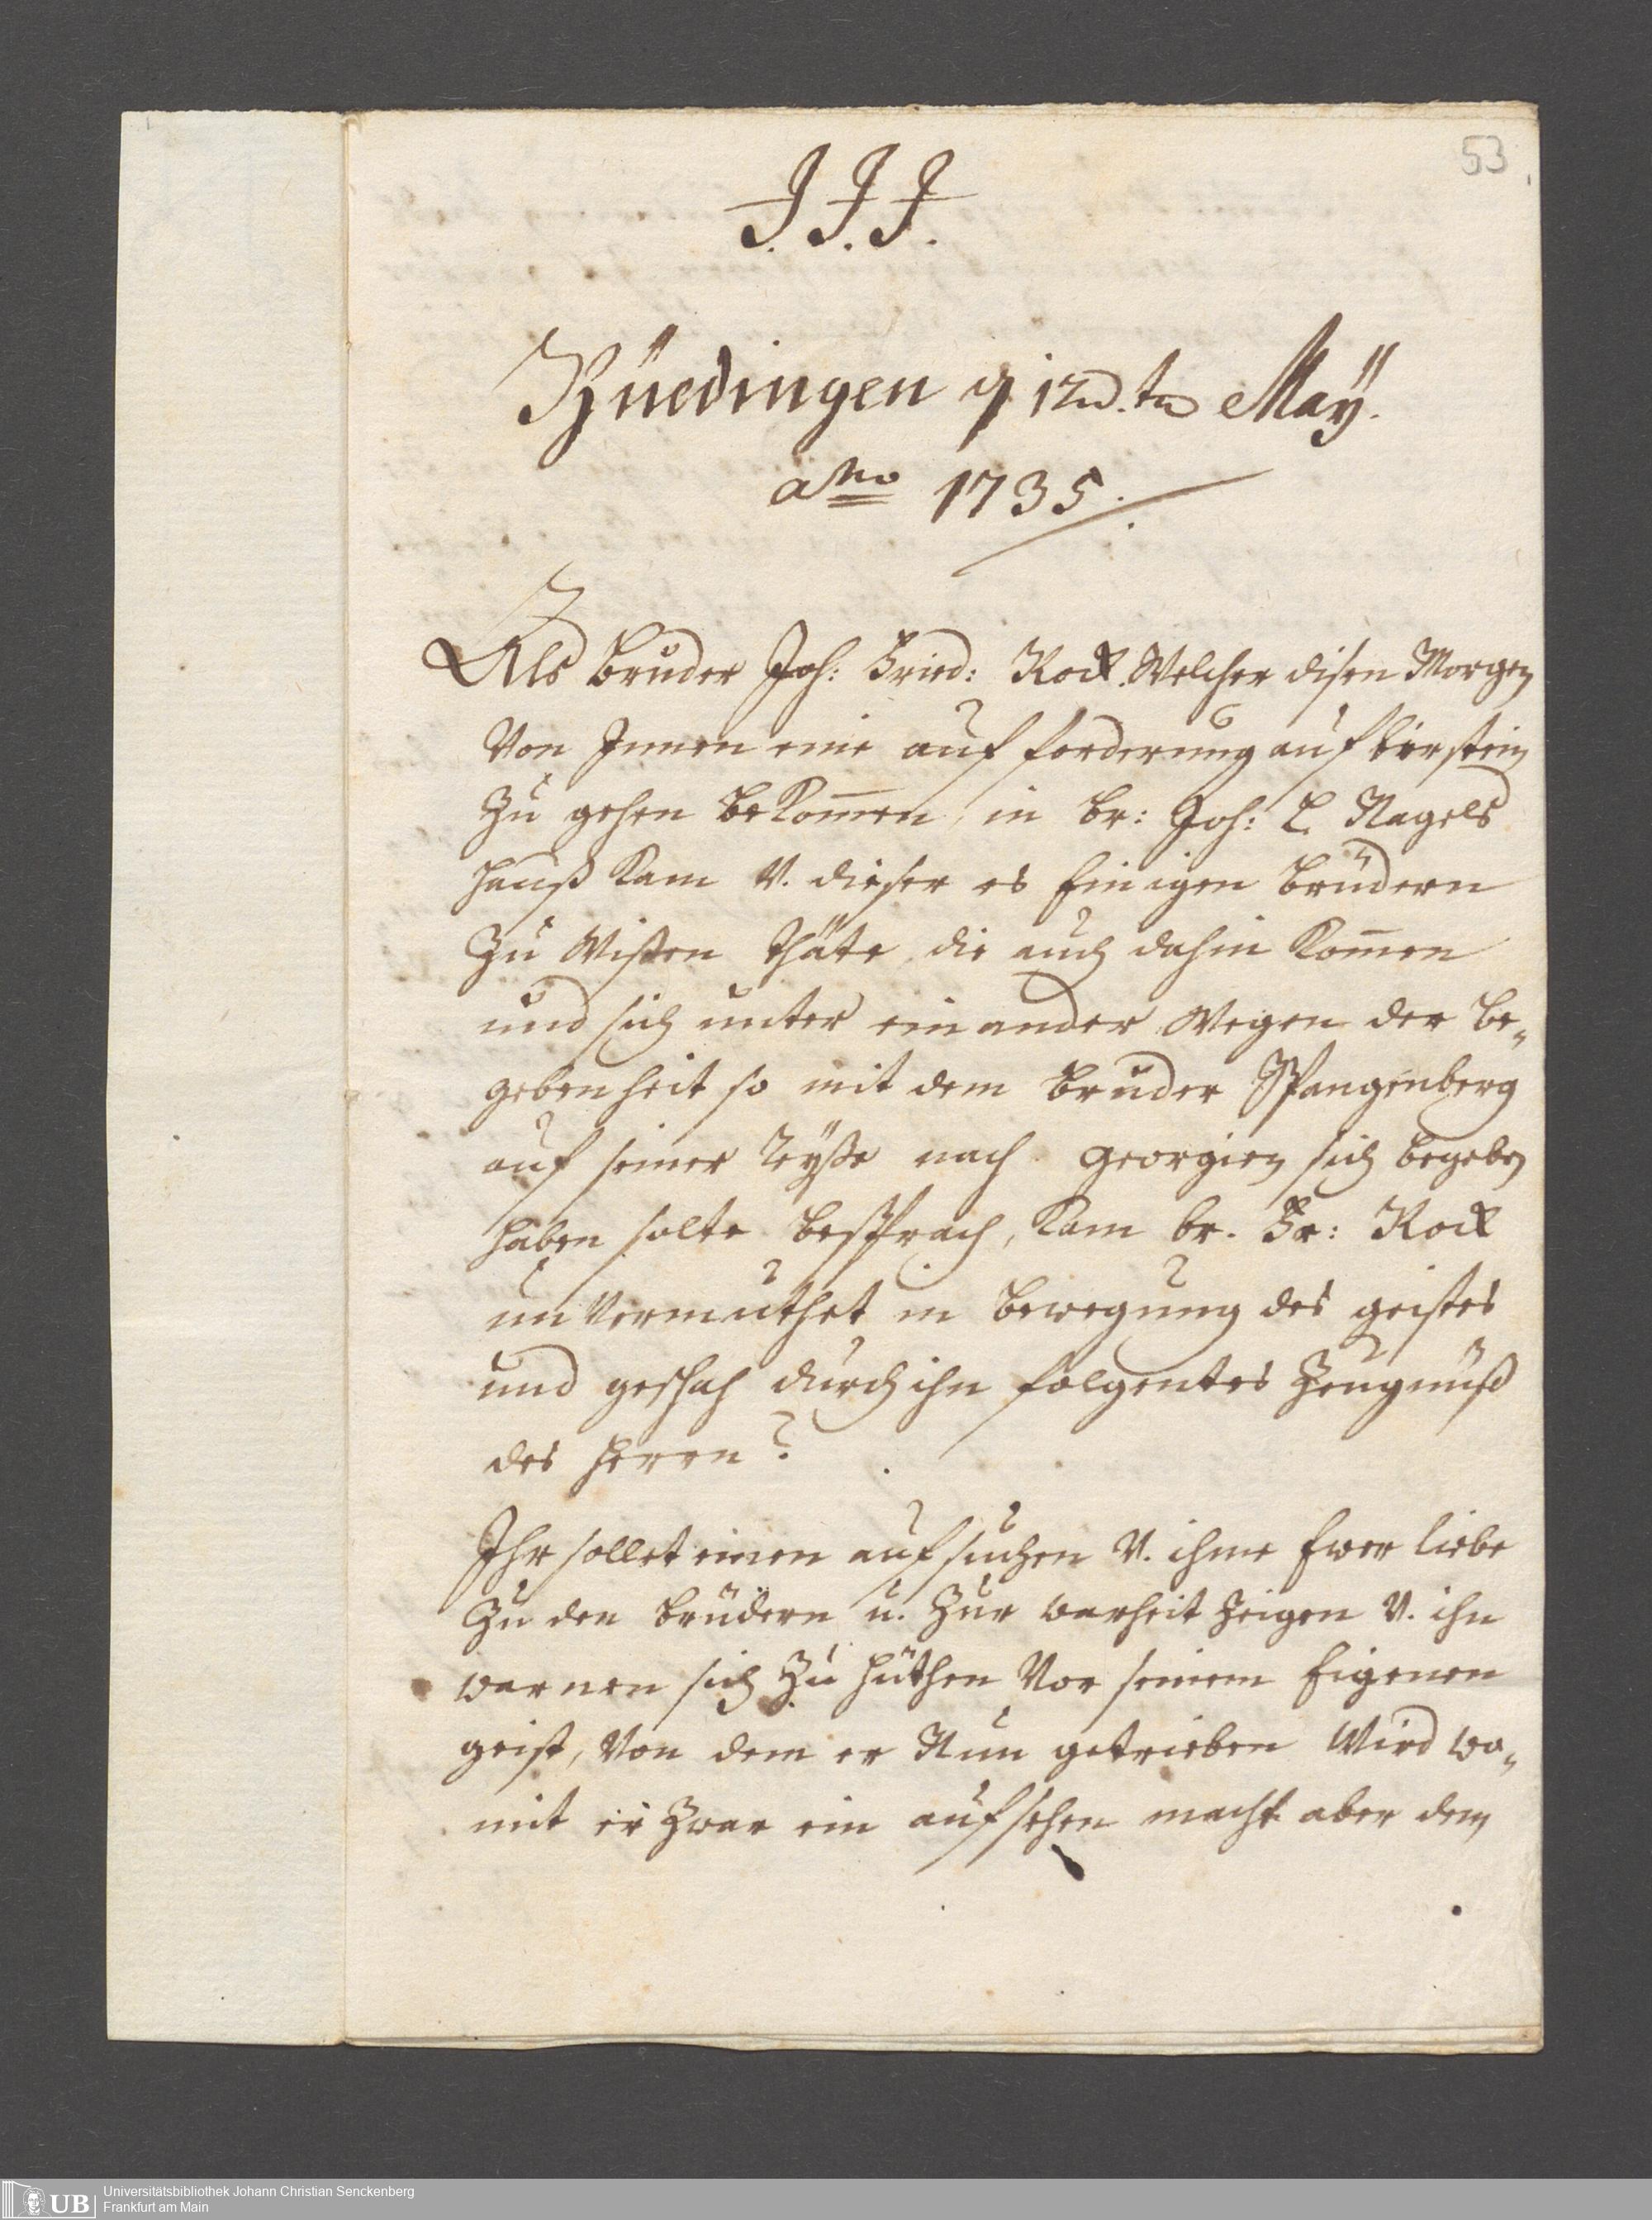 53
J. J. J.
Büedingen d 12.ten Maÿ.
aNo 1735.
Als Bruder Joh: Fried: Rock. Welcher disen Morgen
Von Innen eine auf forderung auf birstein
Zu gehen bekom̄en, in br: Joh: L. Nagels
Hauß Kam V. dieser es Einigen brüdern
Zu Wißen thäte, die auch dahin Kom̄en
und sich unter ein ander Wegen der be-
gebenheit so mit dem Bruder Spangenberg
auf seiner Reyße nach georgien sich begeben
haben solte besprach, Kam br. Fr: Rock
un Vermuthet in bewegung des geistes
und geschah durch ihn folgentes Zeugnüß
des Herren?
Ihr sollet einen aufsuchen V. ihme Ewer liebe
Zu den brüdern u. Zur warheit Zeigen V. ihn
warnen sich Zu hüthen Vor seinem Eigenen
geist, Von dem er Nun getrieben Wird wo-
mit er Zwar ein aufsehen macht aber dem
UB
Universitätsbibliothek Johann Christian Senckenberg
Frankfurt am Main